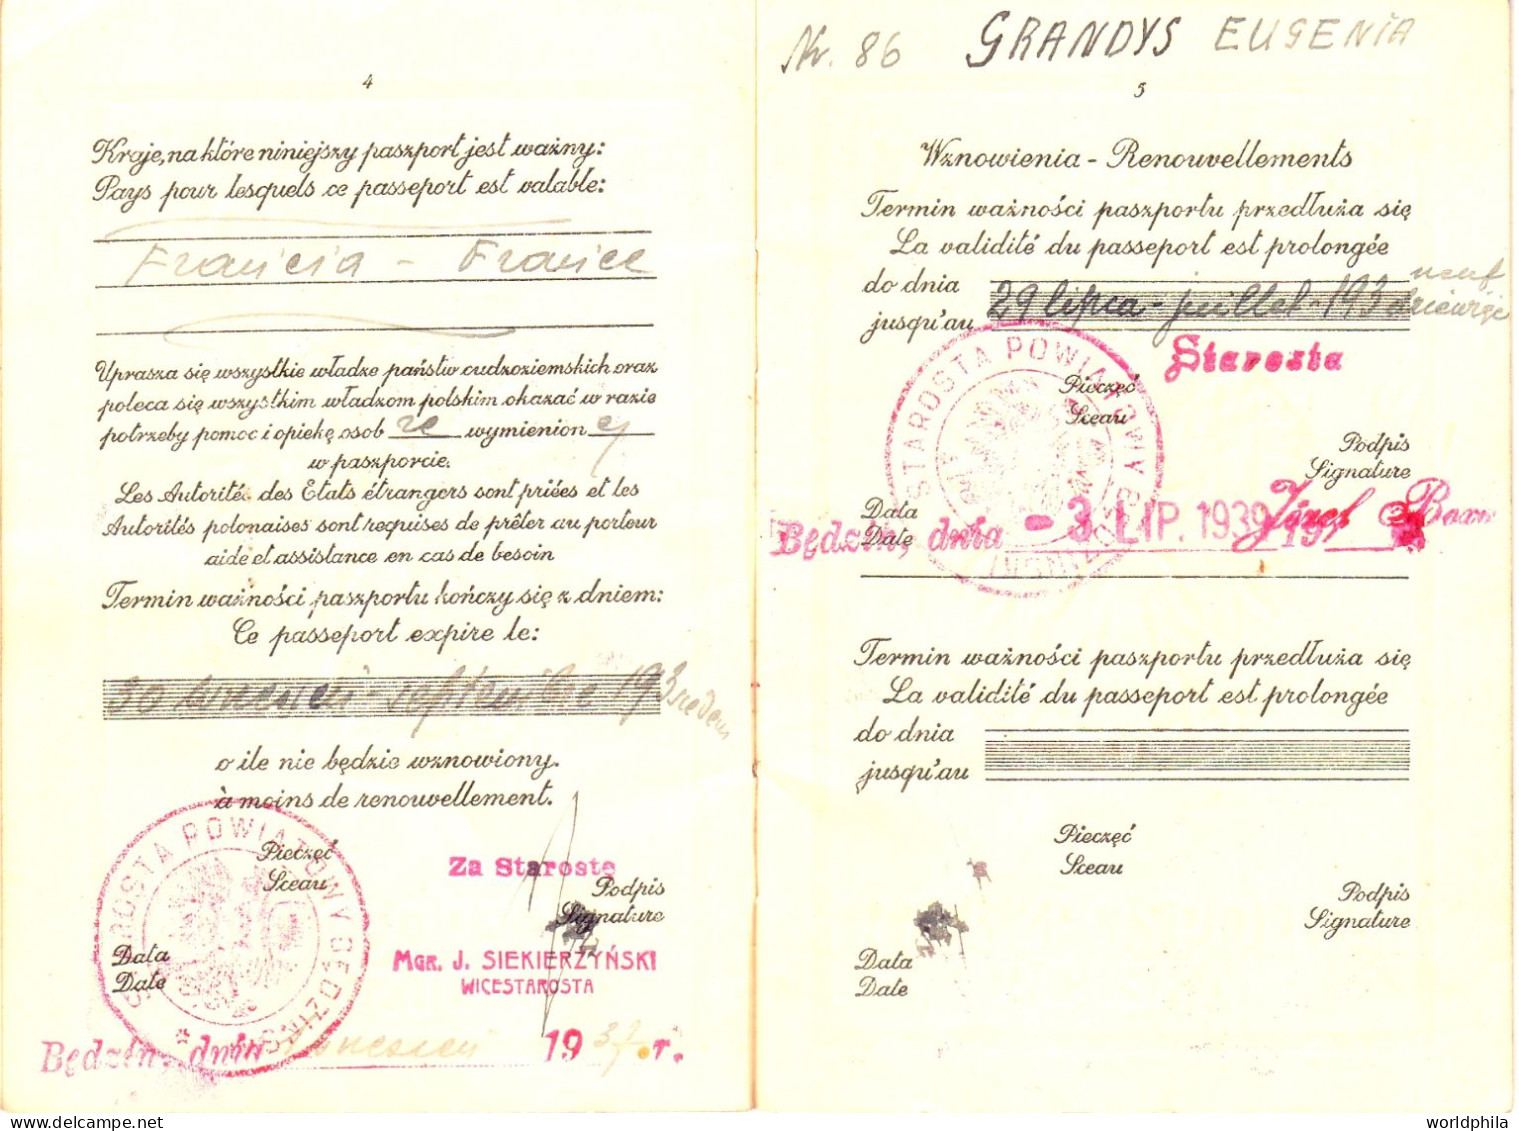 4
Kraje, na które niniejszy paszport jest ważny:
Pays pour lesquels ce passeport est valable:
Francja - France
Uprasza się wszystkie władze państw cudzoziemskich oraz
poleca się wszystkim władzom polskim okazać w razie
potrzeby pomoc i opiekę osob ze wymienion ej
w paszporcie.
Les Autorités des Etats étrangers sont priées et les
Autorités polonaises sont requises de prêter au porteur
aide et assistance en cas de besoin
Termin ważności paszportu kończy się z dniem:
Ce passeport expire le:
30 - septembre 193
o ile nie będzie wznowiony.
à moins de renouvellement.
STAROSTA POWIATOWY BĘDZIŃSKI
Pieczęć
Sceau
Za Starostę
Podpis
Signature
MGR. J. SIEKIERZYŃSKI
WICESTAROSTA
Data
Date
Będzin, dnia 1937 r.
Nr. 86 GRANDYS EUGENIA
5
Wznowienia - Renouvellements
Termin ważności paszportu przedłuża się
La validité du passeport est prolongée
do dnia
jusqu'au
29 lipca - juillet - 193 neuf
Starosta
STAROSTA POWIATOWY
Pieczęć
Sceau
Podpis
Signature
Data
Date
Będzin, dnia - 3 LIP. 1939 193
Józef
Termin ważności paszportu przedłuża się
La validité du passeport est prolongée
do dnia
jusqu'au
Pieczęć
Sceau
Podpis
Signature
Data
Date
worldphila